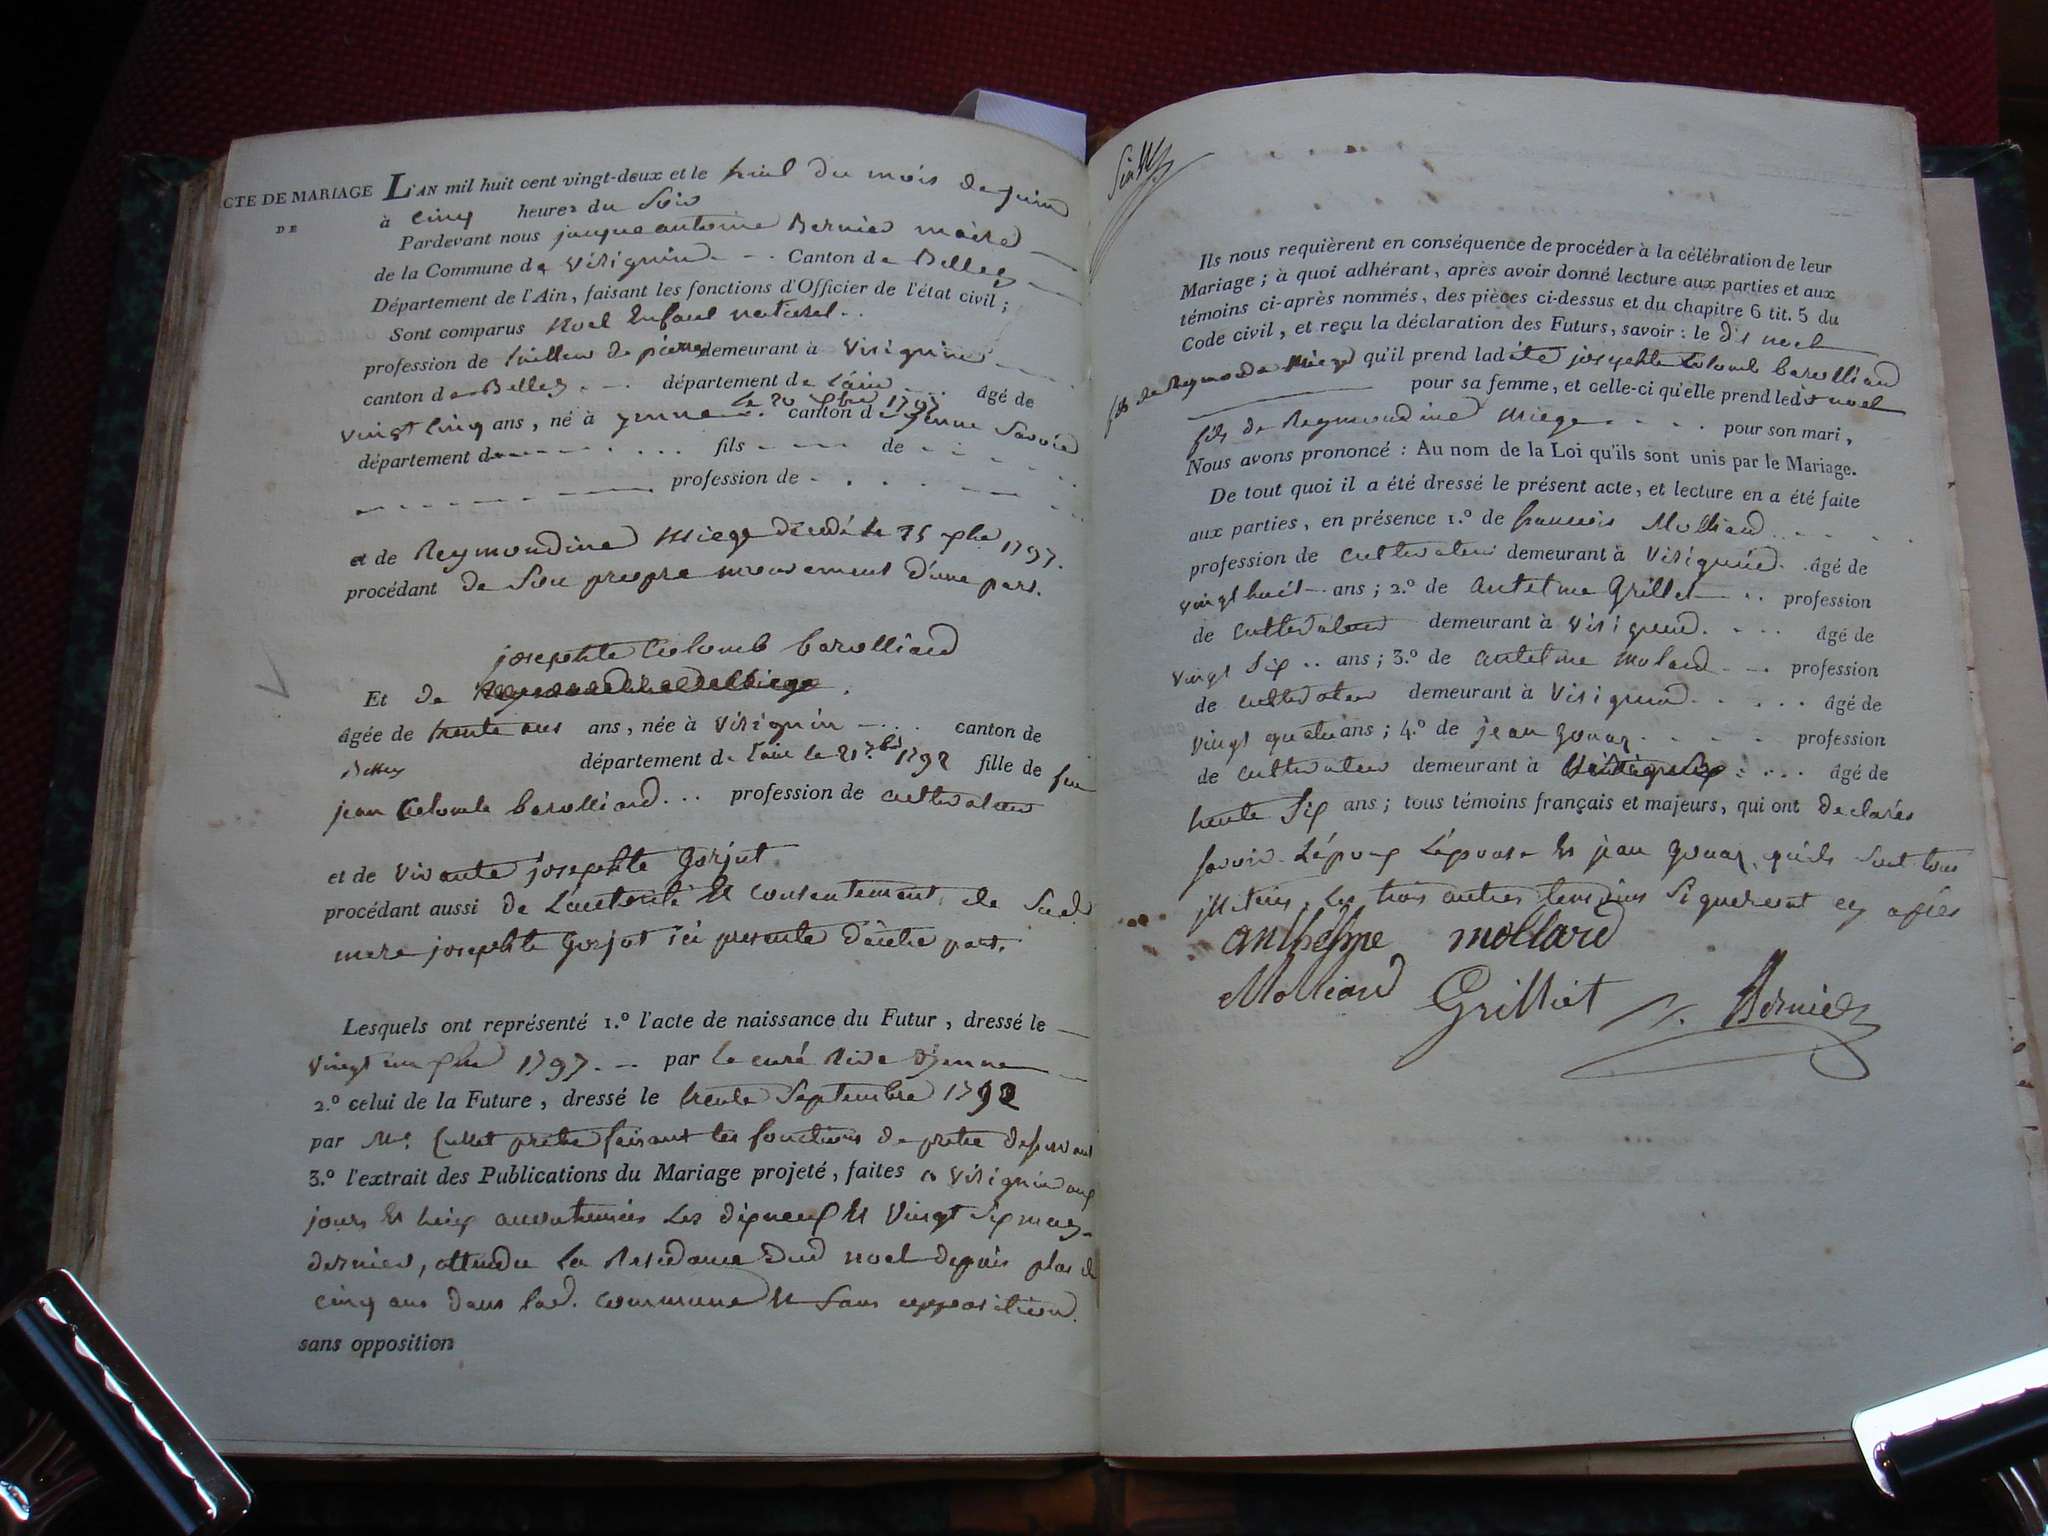 CTE DE MARIAGE
DE
L'AN mil huit cent vingt-deux et le huit du mois de juin
à cinq heures du Soir
Pardevant nous jacque antoine Bernier maire
de la Commune de Virignin Canton de Belley
Département de l'Ain, faisant les fonctions d'Officier de l'état civil;
Sont comparus Noel Enfant naturel
profession de tailleur de pierre demeurant à Virignin
canton de Belley département de l'ain âgé de
vingt cinq ans, né à yenne le 20 1797 canton d'yenne Savoie
département d fils de
profession de
et de Reymondine Miege décédé le 1797.
procédant de Son propre mouvement d'une part.
josephte Colomb barolliard
Et de
âgée de trente ans ans, née à Virignin canton de
Belley département de l'ain le 1792 fille de feu
jean Colomb barolliard profession de cultivateur
et de vivante josephte Gorjut
procédant aussi de L'autorité et consentement de Sad.
mere josephte Gorjut ici presente d'autre part.
Lesquels ont représenté 1.º l'acte de naissance du Futur, dressé le
vingt un 1797. par le curé d'yenne
2.º celui de la Future, dressé le trente Septembre 1792
par Mr. Cullet pretre faisant les fonctions de pretre
3.º l'extrait des Publications du Mariage projeté, faites a Virignin aux
jours et lieux accoutumées Les dixneuf et Vingt Six may
dernier, attendu La Residance Dud noel depuis plus de
cinq ans dans lad. commune et Sans opposition.
sans opposition
Ils nous requièrent en conséquence de procéder à la célébration de leur
Mariage; à quoi adhérant, après avoir donné lecture aux parties et aux
témoins ci-après nommés, des pièces ci-dessus et du chapitre 6 tit. 5 du
Code civil, et reçu la déclaration des Futurs, savoir: le dt noel
fils de Reymonde Miege qu'il prend ladite josephte Colomb barolliard
pour sa femme, et celle-ci qu'elle prend ledt noel
fils de Reymondine Miege pour son mari,
Nous avons prononcé: Au nom de la Loi qu'ils sont unis par le Mariage.
De tout quoi il a été dressé le présent acte, et lecture en a été faite
aux parties, en présence 1.º de francois Molliard
profession de cultivateur demeurant à Virignin âgé de
vingt huit ans; 2.º de antelme Grillet profession
de cultivateur demeurant à Virignin âgé de
vingt Six ans; 3.º de antelme Molard profession
de cultivateur demeurant à Virignin âgé de
vingt quatre ans; 4.º de jean Gonar profession
de cultivateur demeurant à Virignin âgé de
trente Six ans; tous témoins français et majeurs, qui ont declarés
Savoir L'époux L'épouse et jean Gonar, qu'ils Sont tous
Les trois autres temoins Signeront cy après
anthelme mollard
Molliard Grilliet Bernier